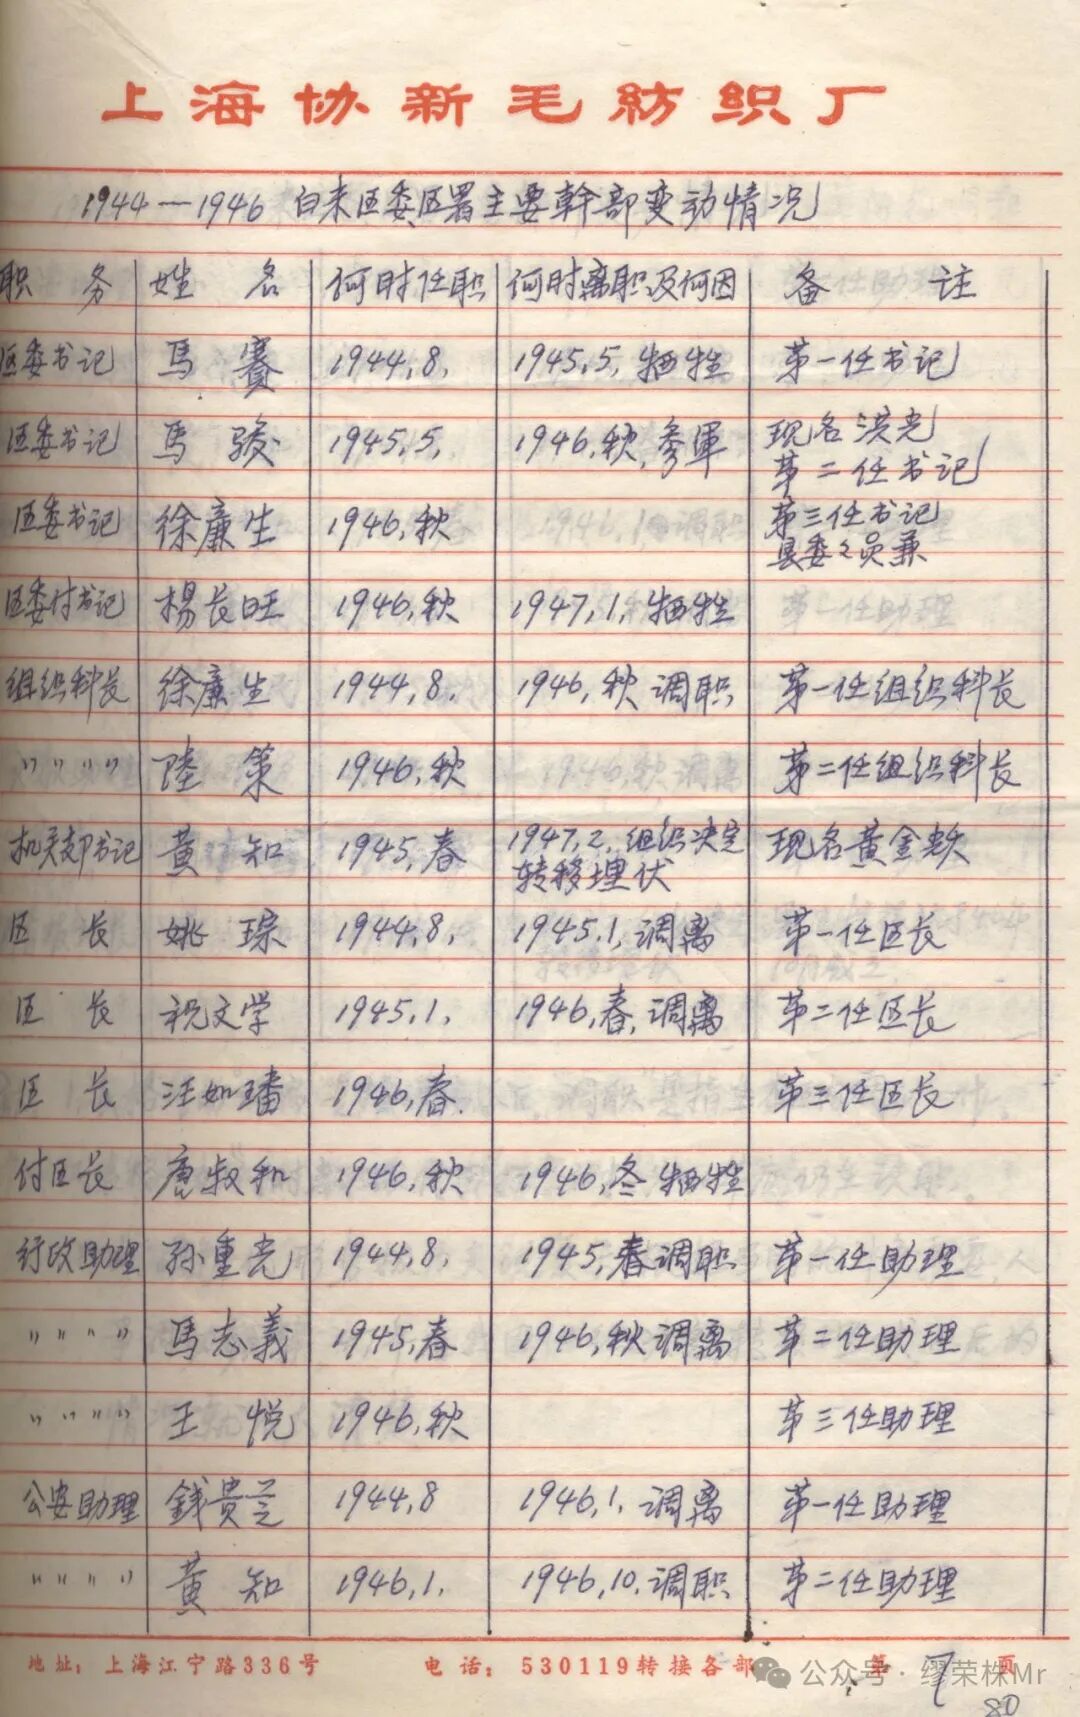 上海协新毛纺织厂
1944—1946 白来区委区署主要幹部变动情况
职务 姓名 何时任职 何时离职及何因 备注
区委书记 馬賽 1944,8, 1945,5, 牺牲 第一任书记
区委书记 馬骏 1945,5, 1946,秋,参軍 现名洪光
第二任书记
区委书记 徐廉生 1946,秋 第三任书记
县委々员兼
区委付书记 楊长旺 1946,秋 1947,1,牺牲
组织科长 徐廉生 1944,8, 1946,秋调职 第一任组织科长
〃〃〃〃 陸策 1946,秋 第二任组织科长
机关支部书记 黄知 1945,春 1947,2,组织决定
转移埋伏 现名黄金
区长 姚琮 1944,8, 1945.1,调离 第一任区长
区长 祝文学 1945,1, 1946,春,调离 第二任区长
区长 汪如璠 1946,春. 第三任区长
付区长 唐叔和 1946,秋 1946,冬牺牲
行政助理 孙重光 1944,8, 1945,春调职 第一任助理
〃〃〃〃 馬志義 1945,春 1946,秋调离 第二任助理
〃〃〃〃 王悦 1946,秋 第三任助理
公安助理 錢貴芝 1944,8 1946,1,调离 第一任助理
〃〃〃〃 黄知 1946,1. 1946,10,调职 第二任助理
地址：上海江宁路336号 电话：530119转接各部 第7页
公众号·缪荣株Mr
80